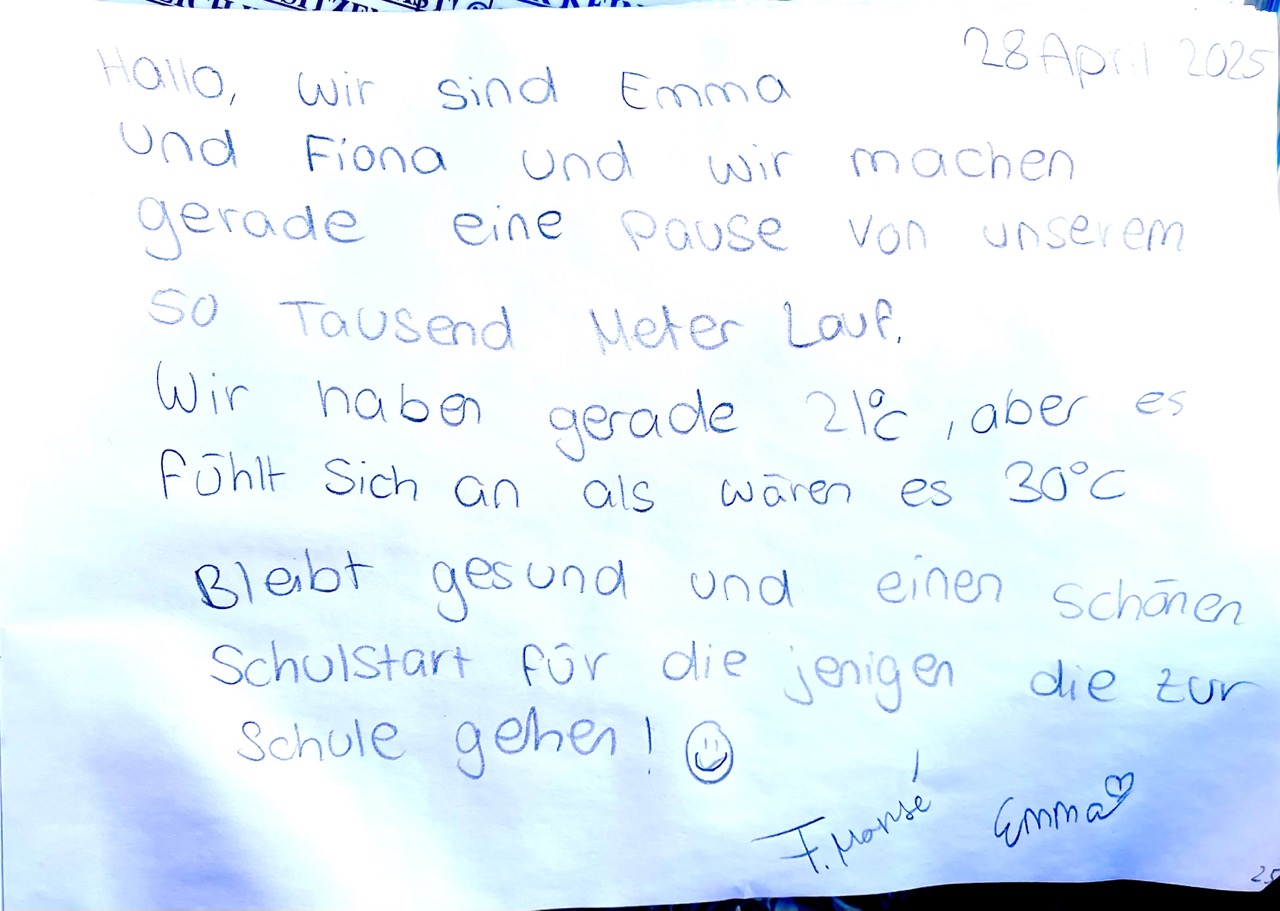 28 April 2025
Hallo, wir sind Emma
und Fiona und wir machen
gerade eine Pause von unserem
50 Tausend Meter Lauf.
Wir haben gerade 21°C, aber es
fühlt sich an als wären es 30°C
Bleibt gesund und einen schönen
Schulstart für die jenigen die zur
Schule gehen!
Emma